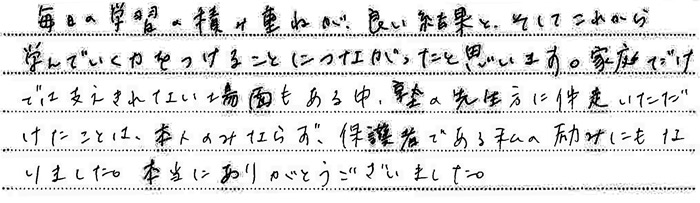 毎日の学習の積み重ねが、良い結果と、そしてこれから
学んでいく力をつけることにつながったと思います。家庭だけ
では支えきれない場面もある中、塾の先生方に伴走いただだ
けたことは、本人のみならず、保護者である私の励みにもな
りました。本当にありがとうございました。